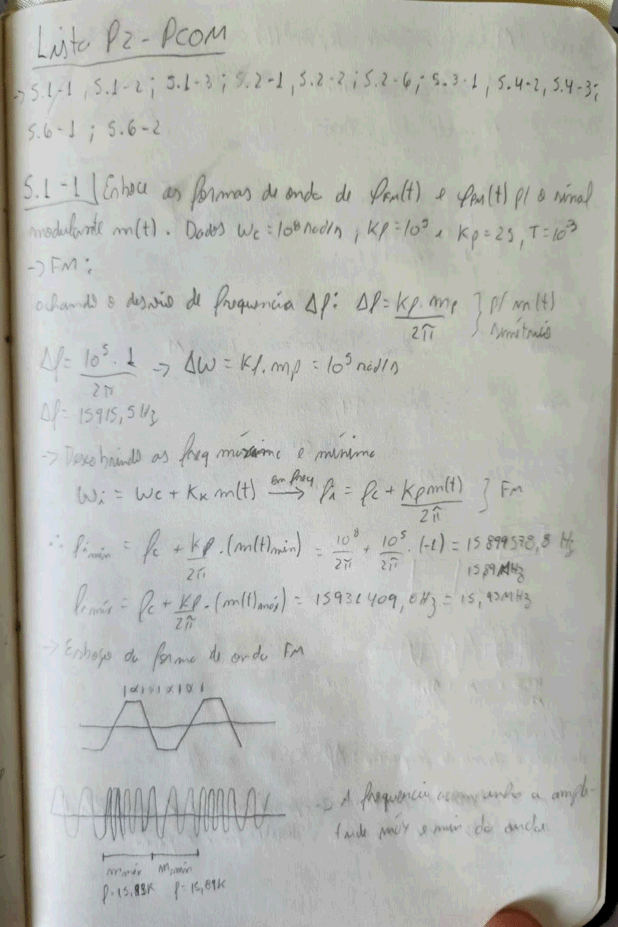 Lista P2 - PCOM
→ 5.1-1, 5.1-2; 5.1-3; 5.2-1, 5.2-2; 5.2-6; 5.3-1; 5.4-2, 5.4-3;
5.6-1; 5.6-2
5.1-1 | Esboce as formas de onda de φFM(t) e φPM(t) p/ o sinal
modulante m(t). Dados Wc = 10⁸ rad/s, Kf = 10⁵ e Kp = 25, T = 10⁻³
→ FM:
achando o desvio de frequencia Δf: Δf = Kf · mp / 2π } p/ m(t) simétrico
Δf = 10⁵ · 1 / 2π → ΔW = Kf · mp = 10⁵ rad/s
Δf = 15915,5 Hz
→ Descobrindo as freq máxima e mínima
Wi = Wc + Kx m(t) → em freq fi = fc + Kf m(t) / 2π } FM
∴ fimin = fc + Kf / 2π · (m(t)min) = 10⁸ / 2π + 10⁵ / 2π · (-1) = 15899578,8 Hz
15,89MHz
fimáx = fc + Kf / 2π · (m(t)máx) = 15931409,8Hz = 15,93MHz
→ Esboço da forma de onda FM
→ A frequencia acompanha a ampli-
tude máx e mín da onda
m máx m mín
f=15,93K f=15,89K